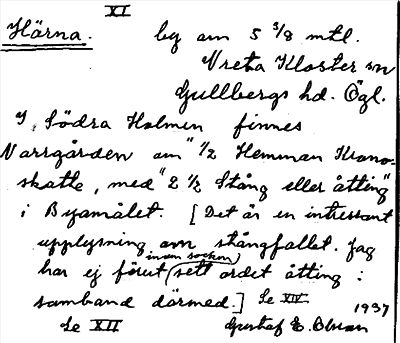 XI
Härna. by om 5 5/8 mtl.
Vreta Kloster sn
Gullbergs hd. Ögl.
I, Södra Holmen finnes
Norrgården om "1/2 Hemman Krono-
skatte, med "2 1/2 Stång eller åtting"
i Byamålet. [Det är en intressant
upplysning om stångfallet. Jag
inom socken
har ej förut sett ordet åtting i
samband därmed.] Se XIV 1937
Se XII Gustaf E. Olsson